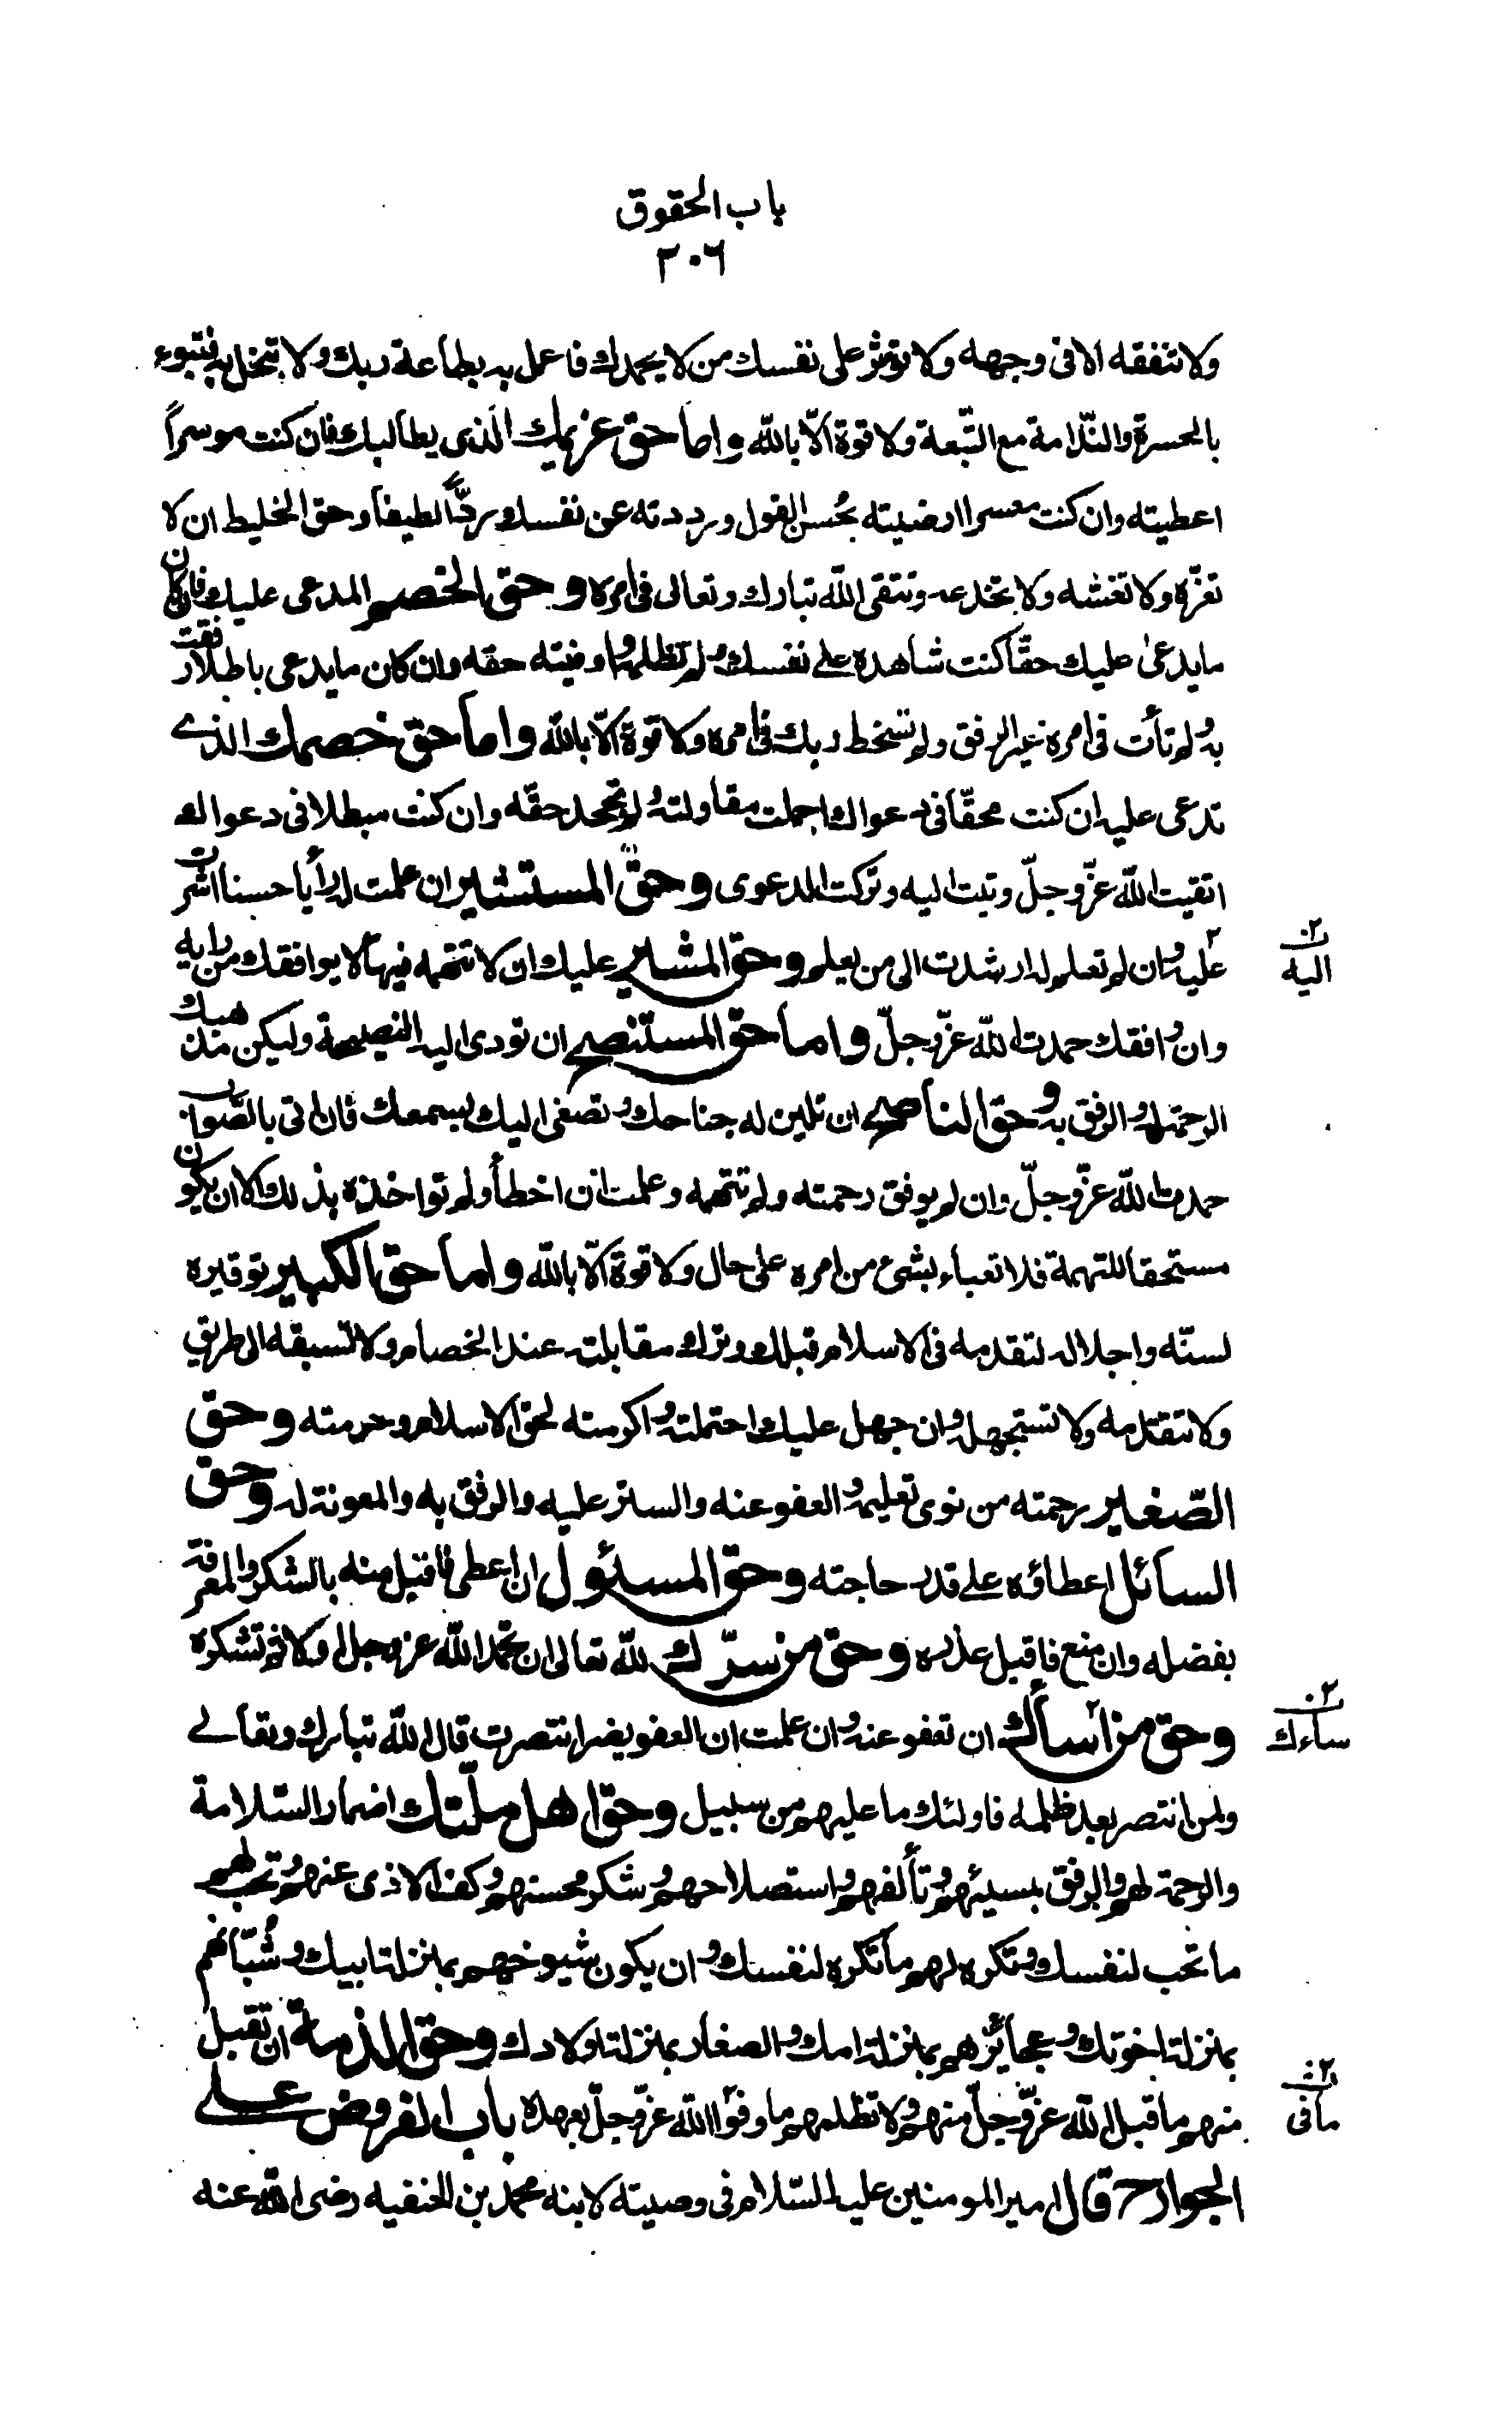 باب الحقوق
٣٠٦
ولا تنفقه الا فى وجهه ولا تؤثر على نفسك من لا يحمدك فاعمل به بطاعة ربك ولا تبخل به فتبوء
بالحسرة والنّدامة مع التّبعة ولا قوة الّا بالله واما حق غريمك الّذى يطالبك فان كنت موسراً
اعطيته وان كنت معسرا ارضيته بحُسن القول ورددته عن نفسك ردّاً لطيفاً وحق الخليط ان لا
تغرّه ولا تغشه ولا تخدعه وتتقى الله تبارك وتعالى فى امره وحق الخصم المدعى عليك فان كان
ما يدعى عليك حقّاً كنت شاهده على نفسك ولم تظلمه واوفيته حقه وان كان ما يدعى باطلا رفقت
به ولم تأت فى امره غير الرفق ولم تسخط ربك فى امره ولا قوة الّا بالله واما حق خصمك الذے
تدعى عليه ان كنت محقّاً فى دعواك اجملت مقاولته ولم تجحد حقّه وان كنت مبطلا فى دعواك
اتقيت الله عزّوجلّ وتبت اليه وتركت الدعوى وحقّ المستشير ان علمت له رأيا حسنا اشرت
عليه وان لم تعلم له ارشدت الى من يعلم وحق المشير عليك ان لا تتهمه فيما لا يوافقك من رايه
٢ن اليه
وان وافقك حمدت الله عزّوجلّ واما حق المستنصح ان تودى اليه النصيحة وليكن مذهبك
الرحمة له والرفق به وحق الناصح ان تلين له جناحك وتصغى اليك بسمعك فان اتى بالصّواب
حمدت الله عزّوجلّ وان لم يوفق رحمته ولم تتهمه وعلمت انه اخطأ ولم تواخذه بذلك الا ان يكون
مستحقا للتهمة فلا تعباء بشئ من امره على حال ولا قوة الّا بالله واما حق الكبير توقيره
لسنّه واجلاله لتقدمه فى الاسلام قبلك وترك مقابلته عند الخصام ولا تسبقه الى طريق
ولا تتقدمه ولا تستجهله وان جهل عليك احتملته واكرمته لحق الاسلام وحرمته وحق
الصّغير رحمته من نوى تعليمه والعفو عنه والستر عليه والرفق به والمعونة له وحق
السائل اعطاؤه على قدر حاجته وحق المسئول ان اعطى فاقبل منه بالشكر والمعرفة
بفضله وان منع فاقبل عذره وحق من سرّك لله تعالى ان تحمد الله عزوجل اولا ثم تشكره
وحق من اساك ان تعفو عنه وان علمت ان العفو يضر انتصرت قال الله تبارك وتعالے
٢ن ساءك
ولمن انتصر بعد ظلمه فاولئك ما عليهم من سبيل وحق اهل ملّتك اضمار السّلامة
والرحمة لهم والرفق بمسيئهم وتألفهم واستصلاحهم وشكر محسنهم وكف الاذى عنهم وتحب لهم
ما تحب لنفسك وتكره لهم ما تكره لنفسك وان يكون شيوخهم بمنزلة ابيك وشُبّانهم
بمنزلة اخوتك وعجائزهم بمنزلة امك والصغار بمنزلة اولادك وحق الذمة ان تقبل
منهم ما قبل الله عزّوجلّ منهم ولا تظلمهم ما وفوا الله عزّوجلّ بعهده باب الفروض علے
٢ن ما فى
الجوارح قال امير المومنين عليه السّلام فى وصيته لابنه محمد بن الحنفيه رضى الله عنه